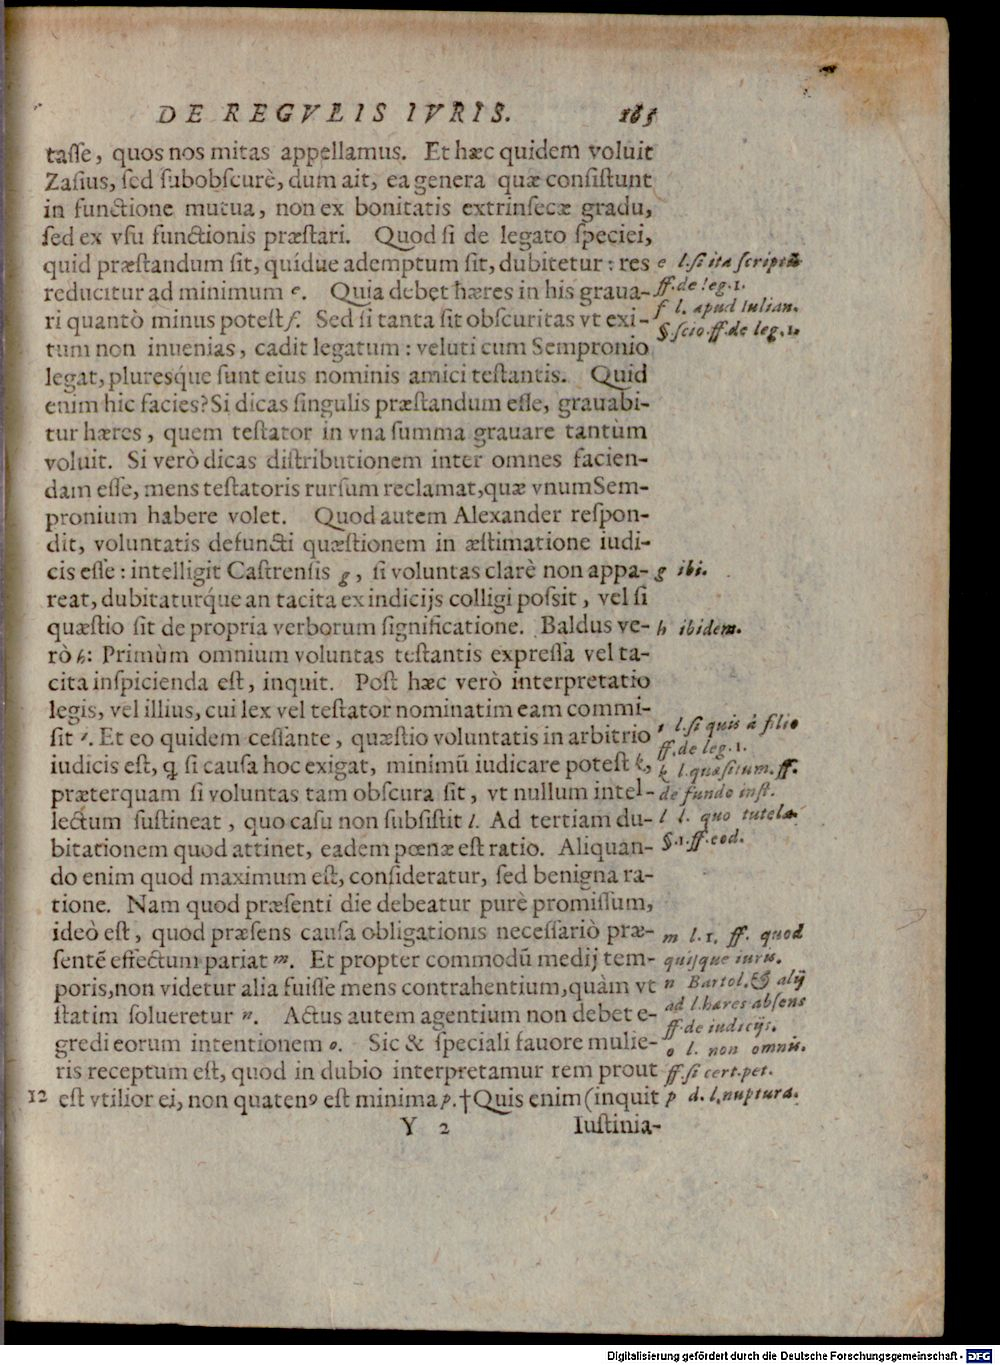 DE REGVLIS IVRIS. 185
taſſe, quos nos mitas appellamus. Et hæc quidem voluit
Zaſius, ſed ſubobſcurè, dum ait, ea genera quæ conſiſtunt
in functione mutua, non ex bonitatis extrinſecæ gradu,
ſed ex vſu functionis præſtari. Quod ſi de legato ſpeciei,
quid præſtandum ſit, quídue ademptum ſit, dubitetur: res
reducitur ad minimum e. Quia debet hæres in his graua-
ri quantò minus poteſt f. Sed ſi tanta ſit obſcuritas vt exi-
tum non inuenias, cadit legatum: veluti cum Sempronio
legat, pluresq́ue ſunt eius nominis amici teſtantis. Quid
enim hic facies? Si dicas ſingulis præſtandum eſſe, grauabi-
tur hæres, quem teſtator in vna ſumma grauare tantùm
voluit. Si verò dicas diſtributionem inter omnes facien-
dam eſſe, mens teſtatoris rurſum reclamat, quæ vnum Sem-
pronium habere volet. Quod autem Alexander reſpon-
dit, voluntatis defuncti quæſtionem in æſtimatione iudi-
cis eſſe: intelligit Caſtrenſis g, ſi voluntas clarè non appa-
reat, dubitaturq́ue an tacita ex indicijs colligi poſsit, vel ſi
quæſtio ſit de propria verborum ſignificatione. Baldus ve-
rò h: Primùm omnium voluntas teſtantis expreſſa vel ta-
cita inſpicienda eſt, inquit. Poſt hæc verò interpretatio
legis, vel illius, cui lex vel teſtator nominatim eam commi-
ſit i. Et eo quidem ceſſante, quæſtio voluntatis in arbitrio
iudicis eſt, ꝗ ſi cauſa hoc exigat, minimū iudicare poteſt k,
præterquam ſi voluntas tam obſcura ſit, vt nullum intel-
lectum ſuſtineat, quo caſu non ſubſiſtit l. Ad tertiam du-
bitationem quod attinet, eadem pœnæ eſt ratio. Aliquan-
do enim quod maximum eſt, conſideratur, ſed benigna ra-
tione. Nam quod præſenti die debeatur purè promiſſum,
ideò eſt, quod præſens cauſa obligationis neceſſariò præ-
ſentē effectum pariat m. Et propter commodū medij tem-
poris, non videtur alia fuiſſe mens contrahentium, quàm vt
ſtatim ſolueretur n. Actus autem agentium non debet e-
gredi eorum intentionem o. Sic & ſpeciali fauore mulie-
ris receptum eſt, quod in dubio interpretamur rem prout
12 eſt vtilior ei, non quatenꝰ eſt minima p. † Quis enim (inquit
Y 2 Iuſtinia-
e l. ſi ita ſcriptū
ff. de leg. 1.
f l. apud Iulian.
§. ſcio. ff. de leg. 1.
g ibi.
h ibidem.
i l. ſi quis à filio
ff. de leg. 1.
k l. quæſitum. ff.
de fundo inſt.
l l. quo tutela.
§. 1. ff. eod.
m l. 1. ff. quod
quiſque iuris.
n Bartol. & alij
ad l. hæres abſens
ff. de iudicijs.
o l. non omnis.
ff. ſi cert. pet.
p d. l. nuptura.
Digitalisierung gefördert durch die Deutsche Forschungsgemeinschaft - DFG